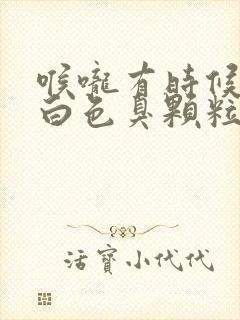 喉嚨有時候
白色臭顆粒
活寶小代代